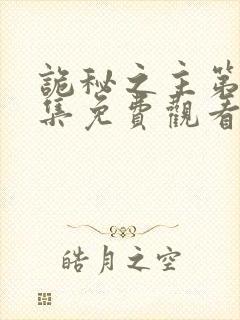 詭秘之主第
集免費觀看
皓月之空